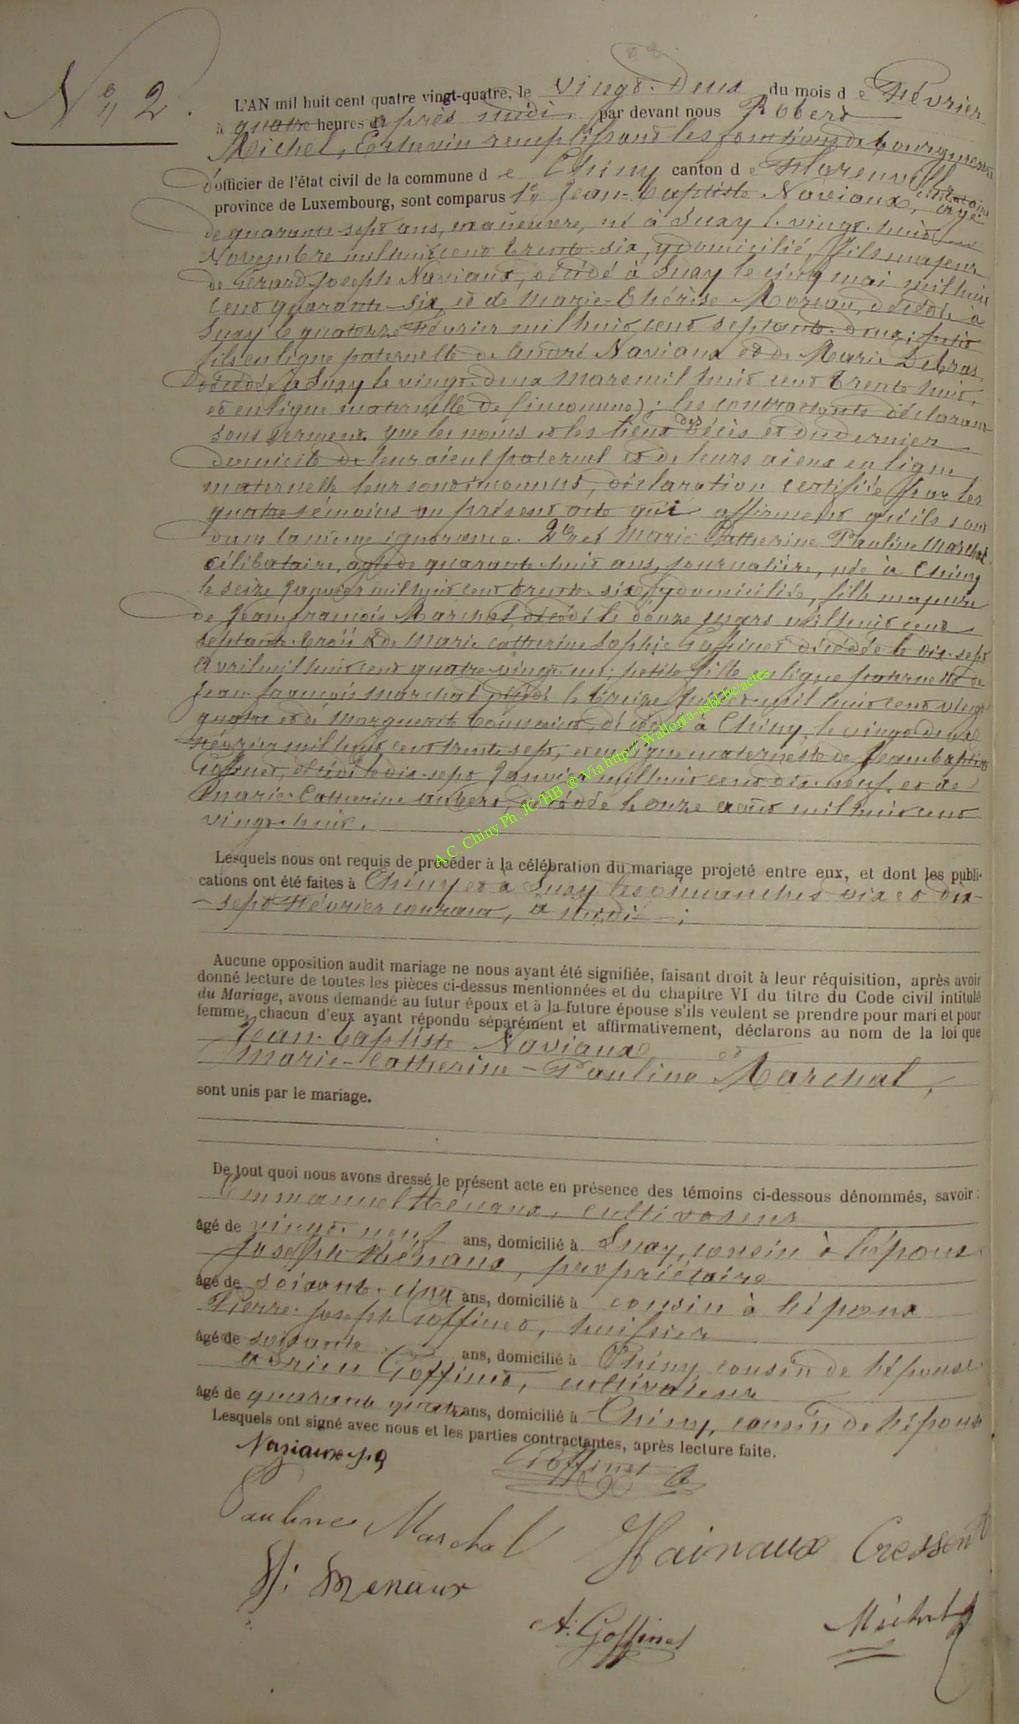 N° 2.
L'AN mil huit cent quatre vingt-quatre, le vingt-deux du mois de Février
à quatre heures d' après midi, par devant nous Robert
Michel, Echevin remplissant les fonctions de bourgmestre
d'officier de l'état civil de la commune de Chiny canton de Florenville
province de Luxembourg, sont comparus 1° Jean-Baptiste Naviaux, célibataire, âgé
de quarante-sept ans, manœuvre, né à Suxy le vingt-huit
Novembre mil huit cent trente-six, y domicilié, fils majeur
de Gérard-Joseph Naviaux, décédé à Suxy le cinq mai mil huit
cent quarante-six, et de Marie-Thérèse Moreau, décédée à
Suxy le quatorze Février mil huit cent septante-deux; petit
fils en ligne paternelle de André Naviaux et de Marie Debras
décédée à Suxy le vingt-deux Mars mil huit cent trente huit,
et en ligne maternelle de (inconnus); les contractants déclarant
sous serment que les noms et les lieux des décès et du dernier
domicile de leur aïeul paternel et de leurs aïeux en ligne
maternelle leur sont inconnus, déclaration certifiée par les
quatre témoins au présent acte qui affirment qu'ils sont
dans la même ignorance. 2° et Marie Catherine Pauline Marchal
célibataire, âgée de quarante huit ans, journalière, née à Chiny
le seize Janvier mil huit cent trente-six, y domiciliée, fille majeure
de Jean François Marchal, décédé le douze mars mil huit cent
septante-trois et de Marie Catherine Sophie Goffinet décédée le dix-sept
Avril mil huit cent quatre-vingt-un; petite fille en ligne paternelle de
Jean François Marchal décédé le treize mil huit cent vingt
quatre et de Marguerite Toussaint, décédée à Chiny, le vingt-deux
Février mil huit cent trente sept, et en ligne maternelle de Jean baptiste
Goffinet, décédé le dix-sept Janvier mil huit cent dix-neuf, et de
Marie-Catherine Aubert, décédée le onze août mil huit cent
vingt-huit.
A.C. Chiny Ph. JC HB @ Via http:// Wallonia-asbl.be/actes
Lesquels nous ont requis de procéder à la célébration du mariage projeté entre eux, et dont les publi-
cations ont été faites à Chiny et à Suxy les dimanches dix et dix-
sept Février courant, à midi;
Aucune opposition audit mariage ne nous ayant été signifiée, faisant droit à leur réquisition, après avoir
donné lecture de toutes les pièces ci-dessus mentionnées et du chapitre VI du titre du Code civil intitulé
du Mariage, avons demandé au futur époux et à la future épouse s'ils veulent se prendre pour mari et pour
femme, chacun d'eux ayant répondu séparément et affirmativement, déclarons au nom de la loi que
Jean-Baptiste Naviaux et
Marie-Catherine-Pauline Marchal,
sont unis par le mariage.
De tout quoi nous avons dressé le présent acte en présence des témoins ci-dessous dénommés, savoir:
Emmanuel Hénaux, cultivateur
âgé de vingt-neuf ans, domicilié à Suxy, cousin à l'époux
Joseph Hénaux, propriétaire
âgé de soixante-cinq ans, domicilié à cousin à l'époux
Pierre-Joseph Goffinet, huissier
âgé de soixante ans, domicilié à Chiny cousin de l'épouse
Adrien Goffinet, cultivateur
âgé de quarante quatre ans, domicilié à Chiny, cousin de l'épouse
Lesquels ont signé avec nous et les parties contractantes, après lecture faite.
Naviaux
Goffinet
Pauline Marchal
Hainaux
A. Goffinet
Michel